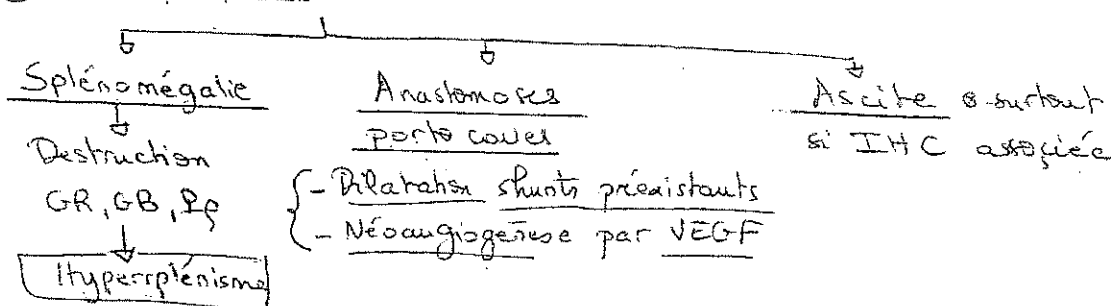 Splénomégalie
Destruction
GR, GB, Pq
Hypersplénisme
Anastomoses
porto caves
- Dilatation shunts préexistants
- Néoangiogenèse par VEGF
Ascite surtout
si IHC associée